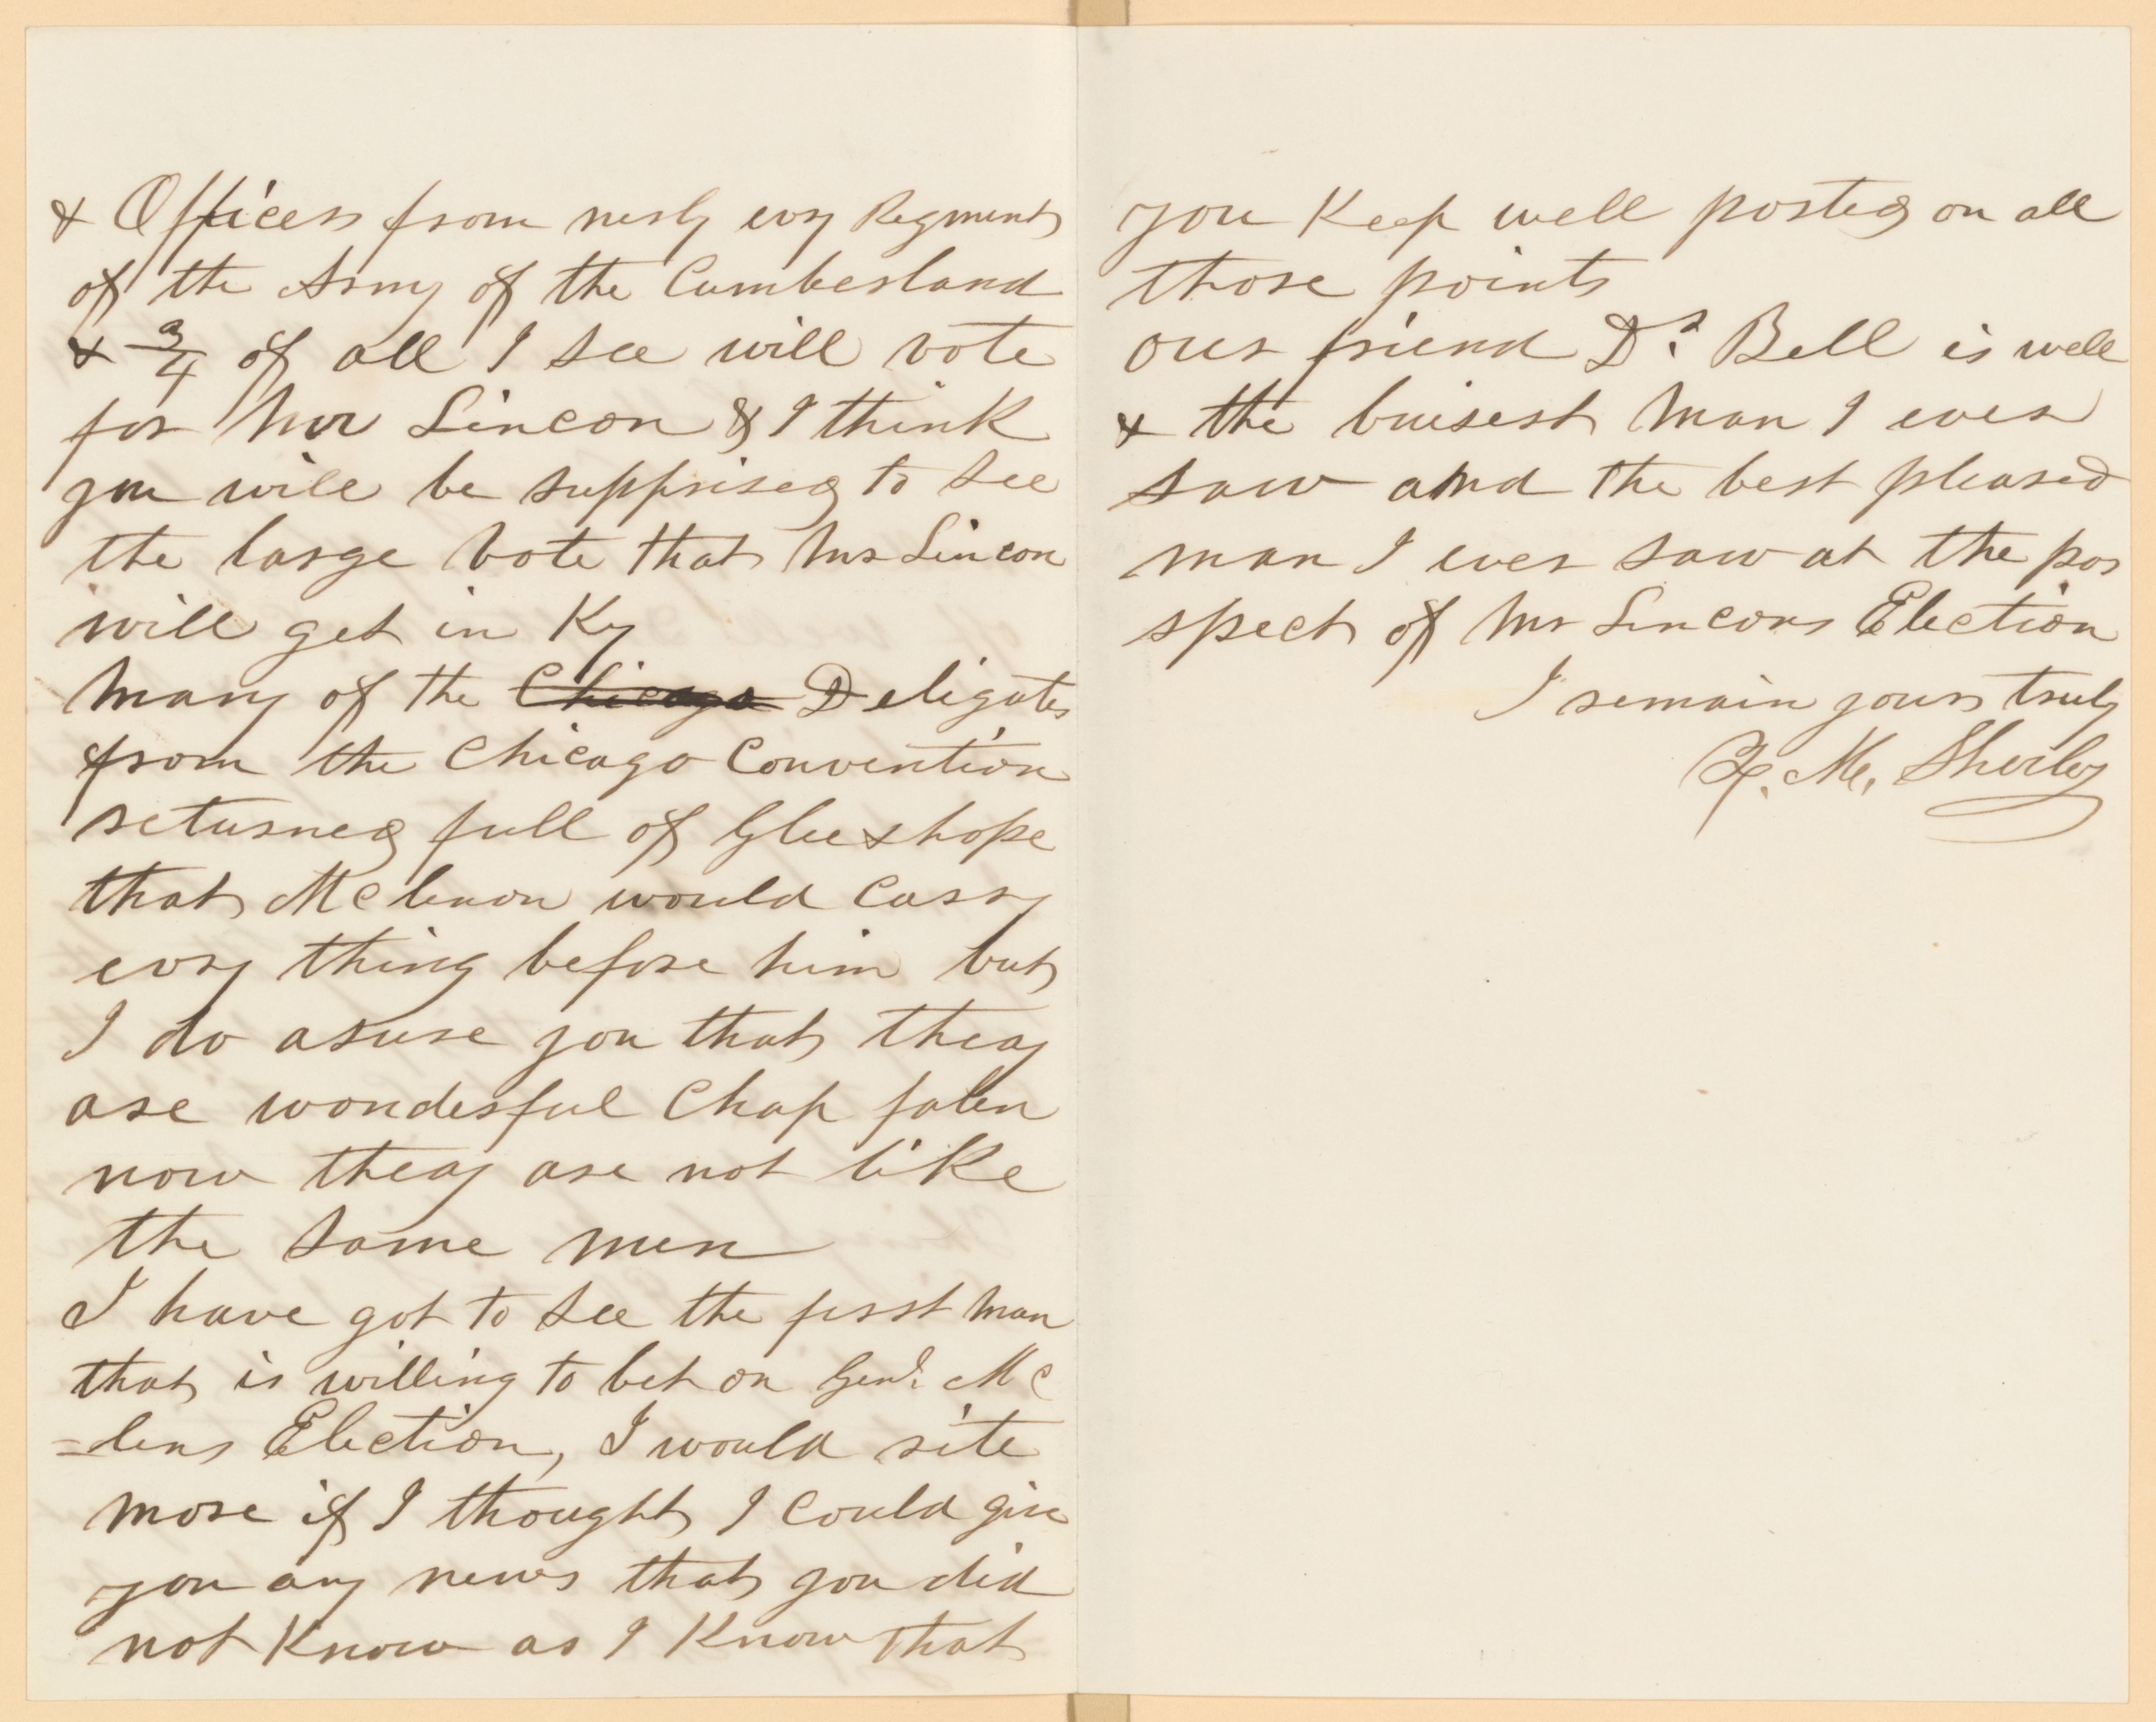 & Officers from nerly evry Regments
of the Army of the Cumberland
& 3/4 of all I see will vote
for Mr Lincon & I think
you will be supprised to see
the large vote that Mr Lincon
will get in Ky
Many of the Chicago Deligates
from the Chicago Convention
returned full of Glee & hope
that Mclenon would Carry
evry thing before him but
I do asure you that theay
are wonderful Chap falen
now theay are not like
the same men
I have got to see the first man
that is willing to bet on Genl. Mc
=lens Election, I would rite
more if I thought I could give
you any news that you did
not Know as I Know that
you Keep well posted on all
those points
our friend Dr. Bell is well
& the buisest man I ever
saw and the best pleased
man I ever saw at the pos
spect of Mr Lincons Election
I remain yours truly
Z. M. Sherley